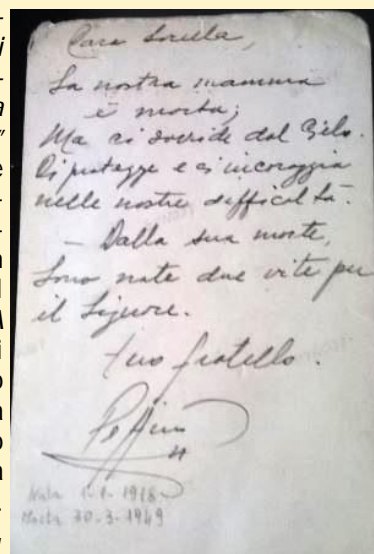 Cara Sorella,
La nostra mamma
è morta;
Ma ci sorride dal Cielo.
Ci protegge e ci incoraggia
nelle nostre difficoltà.
— Dalla sua morte,
Sono nate due vite per
il Signore.
tuo fratello.
Peppino
Nata 1-1-1918
Morta 30-3-1949